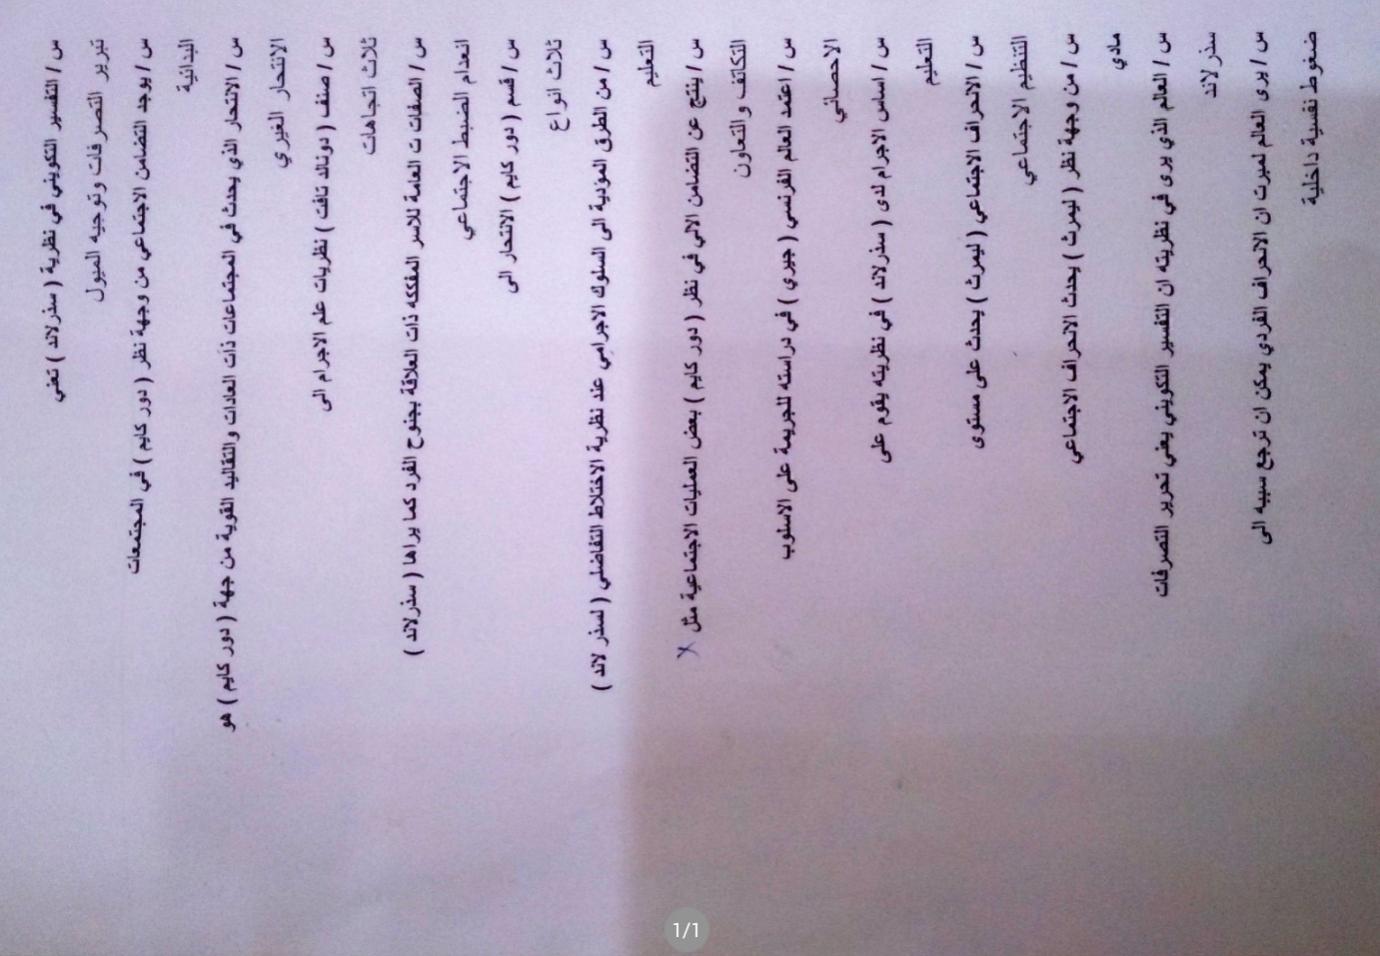 س / التفسير التكويني في نظرية ( سذرلاند ) تعني
تبرير التصرفات وتوجيه الميول
س / يوجد التضامن الاجتماعي من وجهة نظر ( دور كايم ) في المجتمعات
البدائية
س / الانتحار الذي يحدث في المجتماعات ذات العادات والتقاليد القوية من جهة ( دور كايم ) هو
الانتحار الغيري
س / صنف ( دونالد تافت ) نظريات علم الاجرام الى
ثلاث اتجاهات
س / الصفات ت العامة للاسر المفككه ذات العلاقة بجنوح الفرد كما يراها ( سذرلاند )
انعدام الضبط الاجتماعي
س / قسم ( دور كايم ) الانتحار الى
ثلاث انواع
س / من الطرق المؤدية الى السلوك الاجرامي عند نظرية الاختلاط التفاضلي ( لسذر لاند )
التعليم
س / ينتج عن التضامن الالي في نظر ( دور كايم ) بعض العمليات الاجتماعية مثل X
التكاتف والتعاون
س / اعتمد العالم الفرنسي ( جيري ) في دراسته للجريمة على الاسلوب
الاحصائي
س / اساس الاجرام لدى ( سذرلاند ) في نظريته يقوم على
التعليم
س / الانحراف الاجتماعي ( ليمرث ) يحدث على مستوى
التنظيم الاجتماعي
س / من وجهة نظر ( ليمرث ) يحدث الانحراف الاجتماعي
مادي
س / العالم الذي يرى في نظريته ان التفسير التكويني يعني تحرير التصرفات
سذرلاند
س / يرى العالم لميرت ان الانحراف الفردي يمكن ان ترجع سببه الى
ضغوط نفسية داخلية
1/1